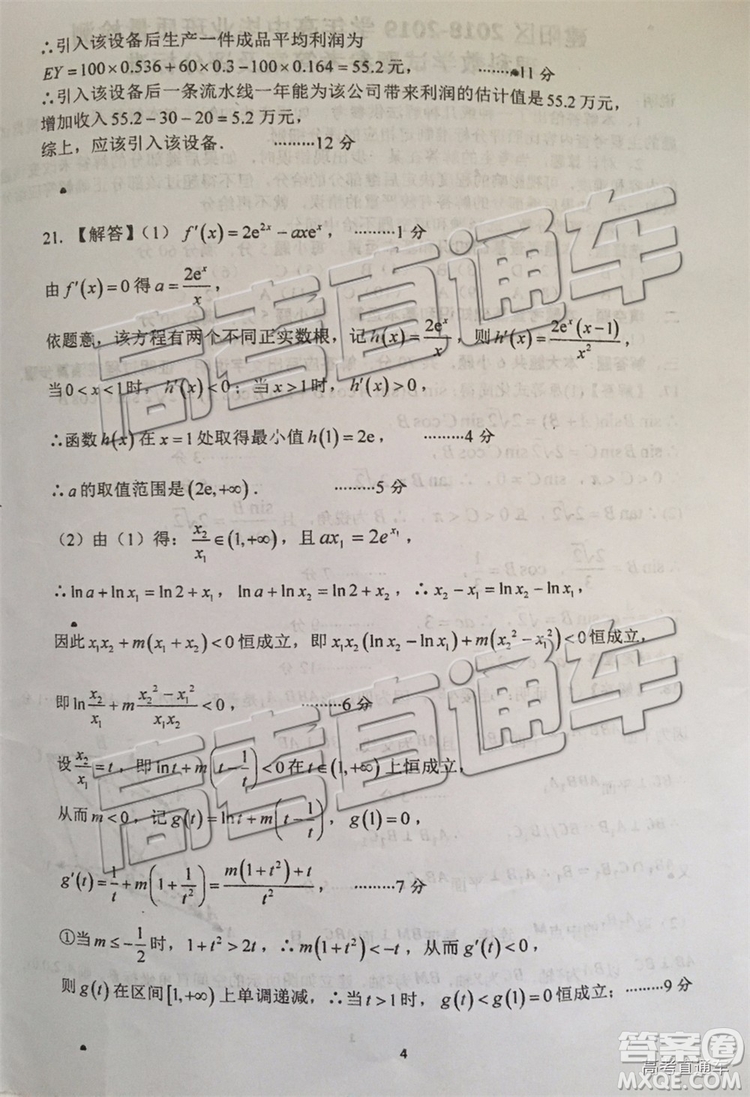 ∴引入该设备后生产一件成品平均利润为
EY=100×0.536+60×0.3−100×0.164=55.2元， ………11 分
∴引入该设备后一条流水线一年能为该公司带来利润的估计值是 55.2 万元，
增加收入 55.2−30−20=5.2万元，
综上，应该引入该设备． ………12 分
21.【解答】（1） f′(x)=2e^{2x}−axe^x， ………1 分
由 f′(x)=0得 a=2e^x/x，
依题意，该方程有两个不同正实数根，记 h(x)=2e^x/x，则 h′(x)=2e^x(x−1)/x²，
当 0<x<1时，h′(x)<0；当 x>1时，h′(x)>0，
∴函数 h(x)在 x=1处取得最小值 h(1)=2e， ………4 分
∴a 的取值范围是(2e,+∞)． ………5 分
（2）由（1）得：x₂/x₁∈(1,+∞)，且 ax₁=2e^{x₁}，
∴ln a+ln x₁=ln2+x₁，ln a+ln x₂=ln2+x₂，∴x₂−x₁=ln x₂−ln x₁，
因此 x₁x₂+m(x₁+x₂)<0恒成立，即 x₁x₂(ln x₂−ln x₁)+m(x₂²−x₁²)<0恒成立，
即 ln x₂/x₁+m (x₂²−x₁²)/(x₁x₂)<0， ………6 分
设 x₂/x₁=t，即 ln t+m(t−1/t)<0在 t∈(1,+∞)上恒成立，
从而 m<0，记 g(t)=ln t+m(t−1/t)，g(1)=0，
g′(t)=1/t+m(1+1/t²)=(m(1+t²)+t)/t²， ………7 分
①当 m≤−1/2时，1+t²>2t，∴m(1+t²)<−t，从而 g′(t)<0，
则 g(t)在区间[1,+∞)上单调递减，∴当 t>1时，g(t)<g(1)=0恒成立；………9 分
4
高考直通车
高考直通车
答案圈
高考直通车
MXQE.COM